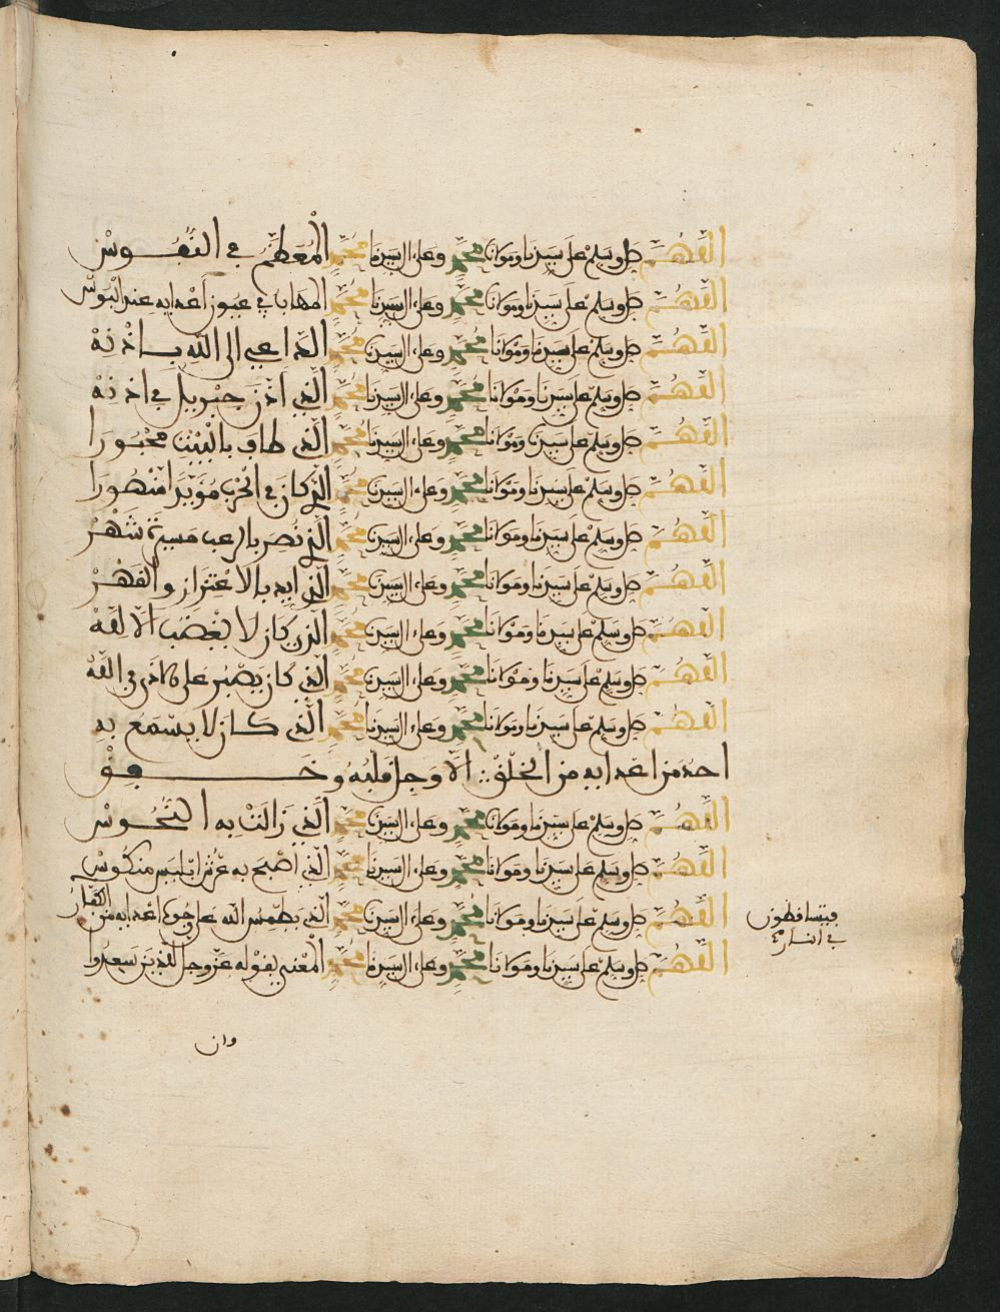 اللهم صل وسلم على سيدنا ومولانا محمد وعلى ال سيدنا محمد المعظم في النفوس
اللهم صل وسلم على سيدنا ومولانا محمد وعلى ال سيدنا محمد المهاب في عيون أعدايه عند البوس
اللهم صل وسلم على سيدنا ومولانا محمد وعلى ال سيدنا محمد الداعي الى الله باذنه
اللهم صل وسلم على سيدنا ومولانا محمد وعلى ال سيدنا محمد الذي اذن جبريل في اذنه
اللهم صل وسلم على سيدنا ومولانا محمد وعلى ال سيدنا محمد الذي طاف بالبيت محبورا
اللهم صل وسلم على سيدنا ومولانا محمد وعلى ال سيدنا محمد الذي كان في الحرب مؤيدا منصورا
اللهم صل وسلم على سيدنا ومولانا محمد وعلى ال سيدنا محمد الذي نصر بالرعب مسيرة شهر
اللهم صل وسلم على سيدنا ومولانا محمد وعلى ال سيدنا محمد الذي ايد بالاعتزاز والقهر
اللهم صل وسلم على سيدنا ومولانا محمد وعلى ال سيدنا محمد الذي كان لا يغضب الا لله
اللهم صل وسلم على سيدنا ومولانا محمد وعلى ال سيدنا محمد الذي كان يصبر على الاذى في الله
اللهم صل وسلم على سيدنا ومولانا محمد وعلى ال سيدنا محمد الذي كان لا يسمع به
احد من اعدايه من الخلق الا وجل قلبه وخفق
اللهم صل وسلم على سيدنا ومولانا محمد وعلى ال سيدنا محمد الذي زالت به النحوس
اللهم صل وسلم على سيدنا ومولانا محمد وعلى ال سيدنا محمد الذي اصبح به عرش ابليس منكوس
اللهم صل وسلم على سيدنا ومولانا محمد وعلى ال سيدنا محمد الذي يطمس الله على وجوه اعدايه من الكفار
فيتساقطون
في النار
اللهم صل وسلم على سيدنا ومولانا محمد وعلى ال سيدنا محمد المعني بقوله عز وجل الذين سعدوا
وان